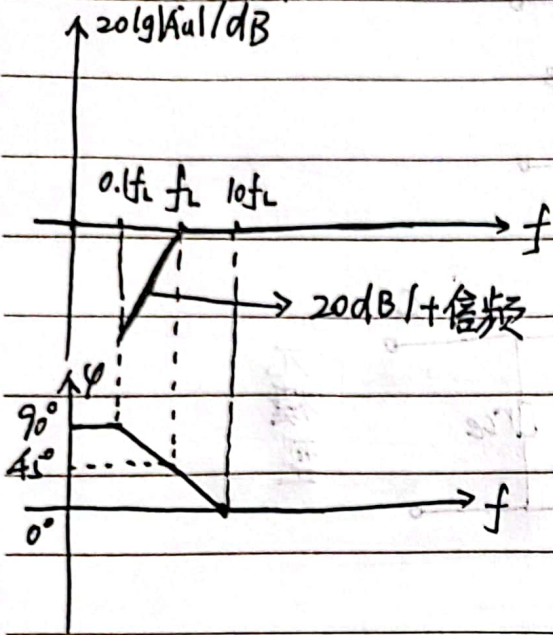 20lg|Ȧu|/dB
0.1fL fL 10fL
f
20dB/十倍频
φ
90°
45°
0°
f